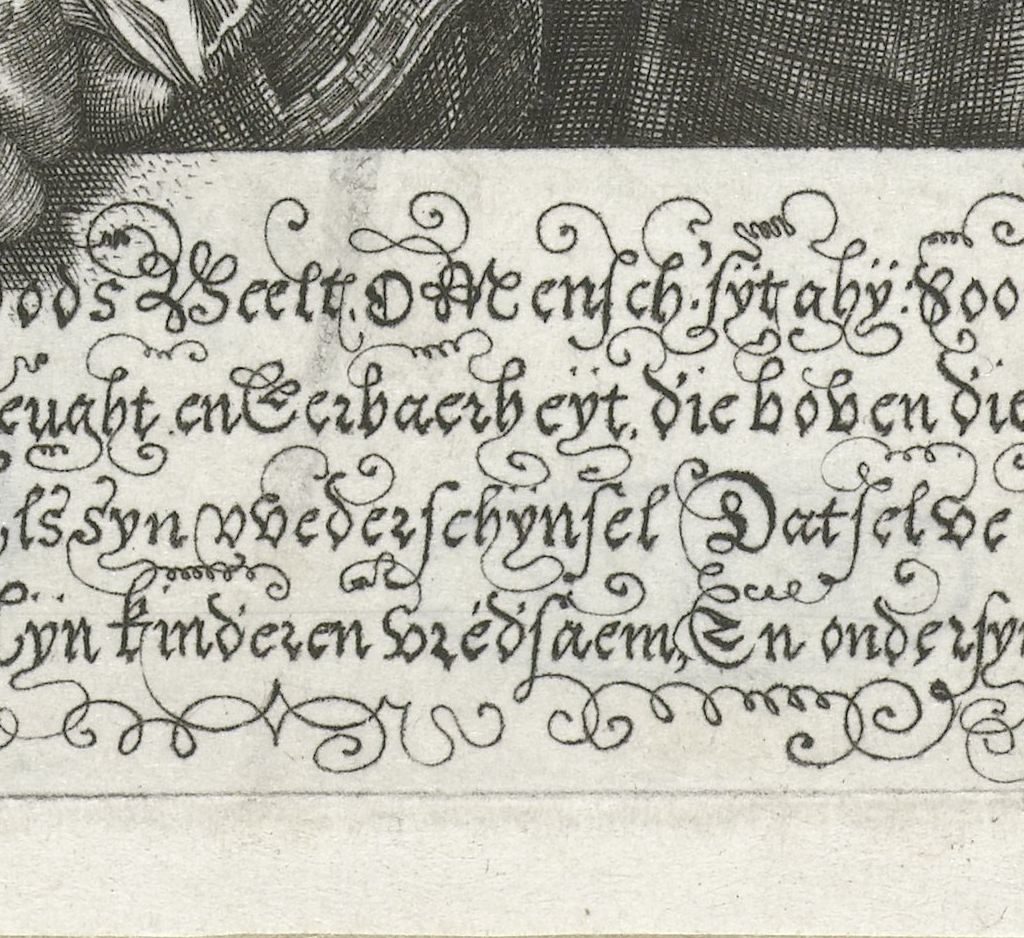 ods Beelt. O Mensch. sÿt ghÿ: Soo
eught. en Eerbaerheÿt, die boven die
ls syn vvederschÿnsel Datselve
Lÿn kinderen vrédsaem, En ondersy